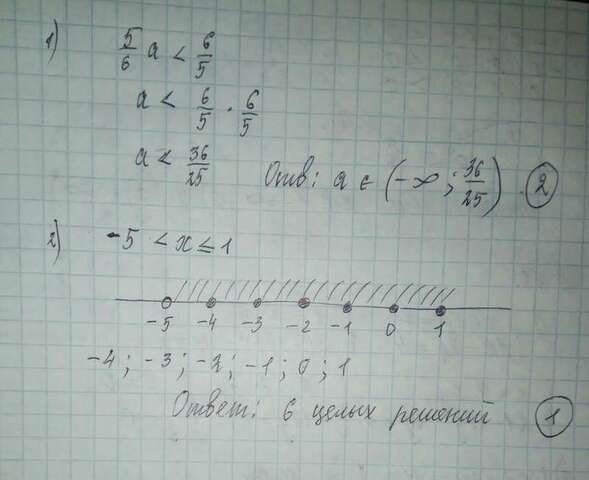 1) 5/6 a < 6/5
a < 6/5 · 6/5
a < 36/25 Отв: a ∈ (-∞; 36/25). 2
2) -5 < x ≤ 1
-5 -4 -3 -2 -1 0 1
-4; -3; -2; -1; 0; 1
Ответ: 6 целых решений 1